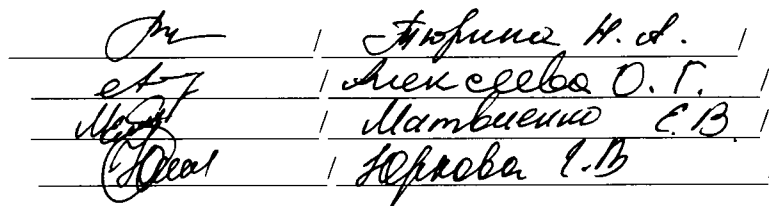 / Тюрина Н. А. /
/ Алексеева О. Г. /
/ Матвиенко Е. В. /
/ Юркова Е. В